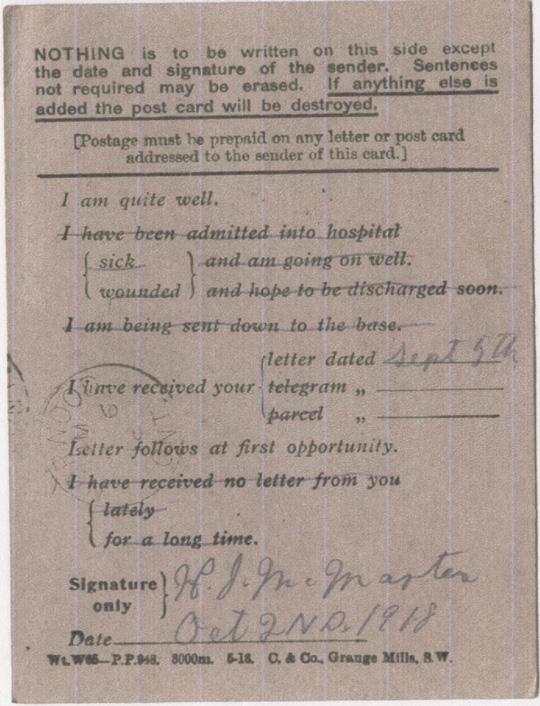 NOTHING is to be written on this side except
the date and signature of the sender. Sentences
not required may be erased. If anything else is
added the post card will be destroyed.
[Postage must be prepaid on any letter or post card
addressed to the sender of this card.]
I am quite well.
I have been admitted into hospital
{ sick } and am going on well.
{ wounded } and hope to be discharged soon.
I am being sent down to the base.
letter dated Sept 9th
I have received your { telegram „
parcel „
Letter follows at first opportunity.
I have received no letter from you
{ lately
for a long time.
Signature
only } H. J. McMaster
Date Oct 2ND. 1918
Wt.W65—P.P.948. 8000m. 5-18. C. & Co., Grange Mills, S.W.